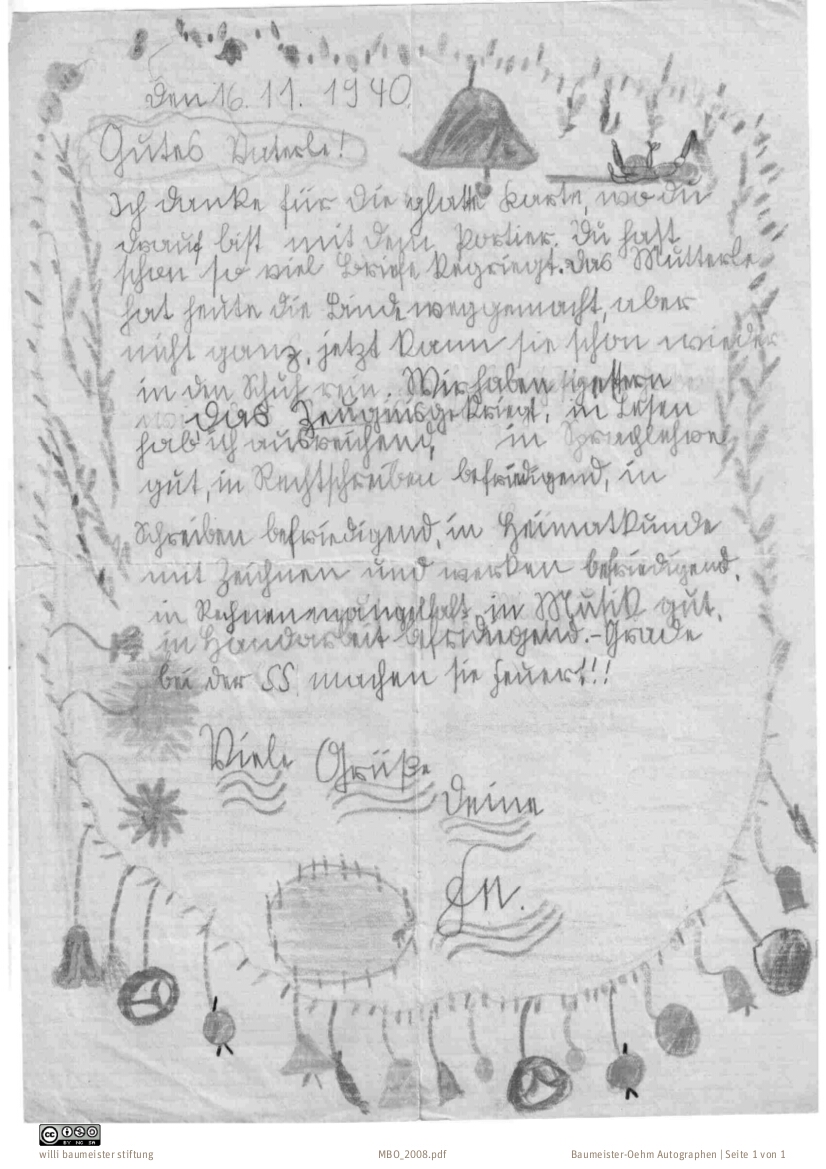 den 16. 11. 1940.
Gutes Vaterle!
Ich danke für die glatte Karte, wo du
drauf bist mit dem Portier. Du hast
schon so viel Briefe kegriegt. das Mutterle
hat heute die Binde weggemacht, aber
nicht ganz, jetzt kann sie schon wieder
in den Schuh rein. Wir haben gestern
das Zeugnis gekriegt, in Lesen
hab ich ausreichend, in Sprachlehre
gut, in Rechtschreiben befriedigend, in
Schreiben befriedigend, in Heimatkunde
mit Zeichnen und werken befriedigend,
in Rechnen mangelhaft, in Musik gut,
in Handarbeit befridiegend.- Grade
bei der SS machen sie Feuer!!!
Viele Grüße
Deine
willi baumeister stiftung
MBO_2008.pdf
Baumeister-Oehm Autographen | Seite 1 von 1
CC BY NC SA